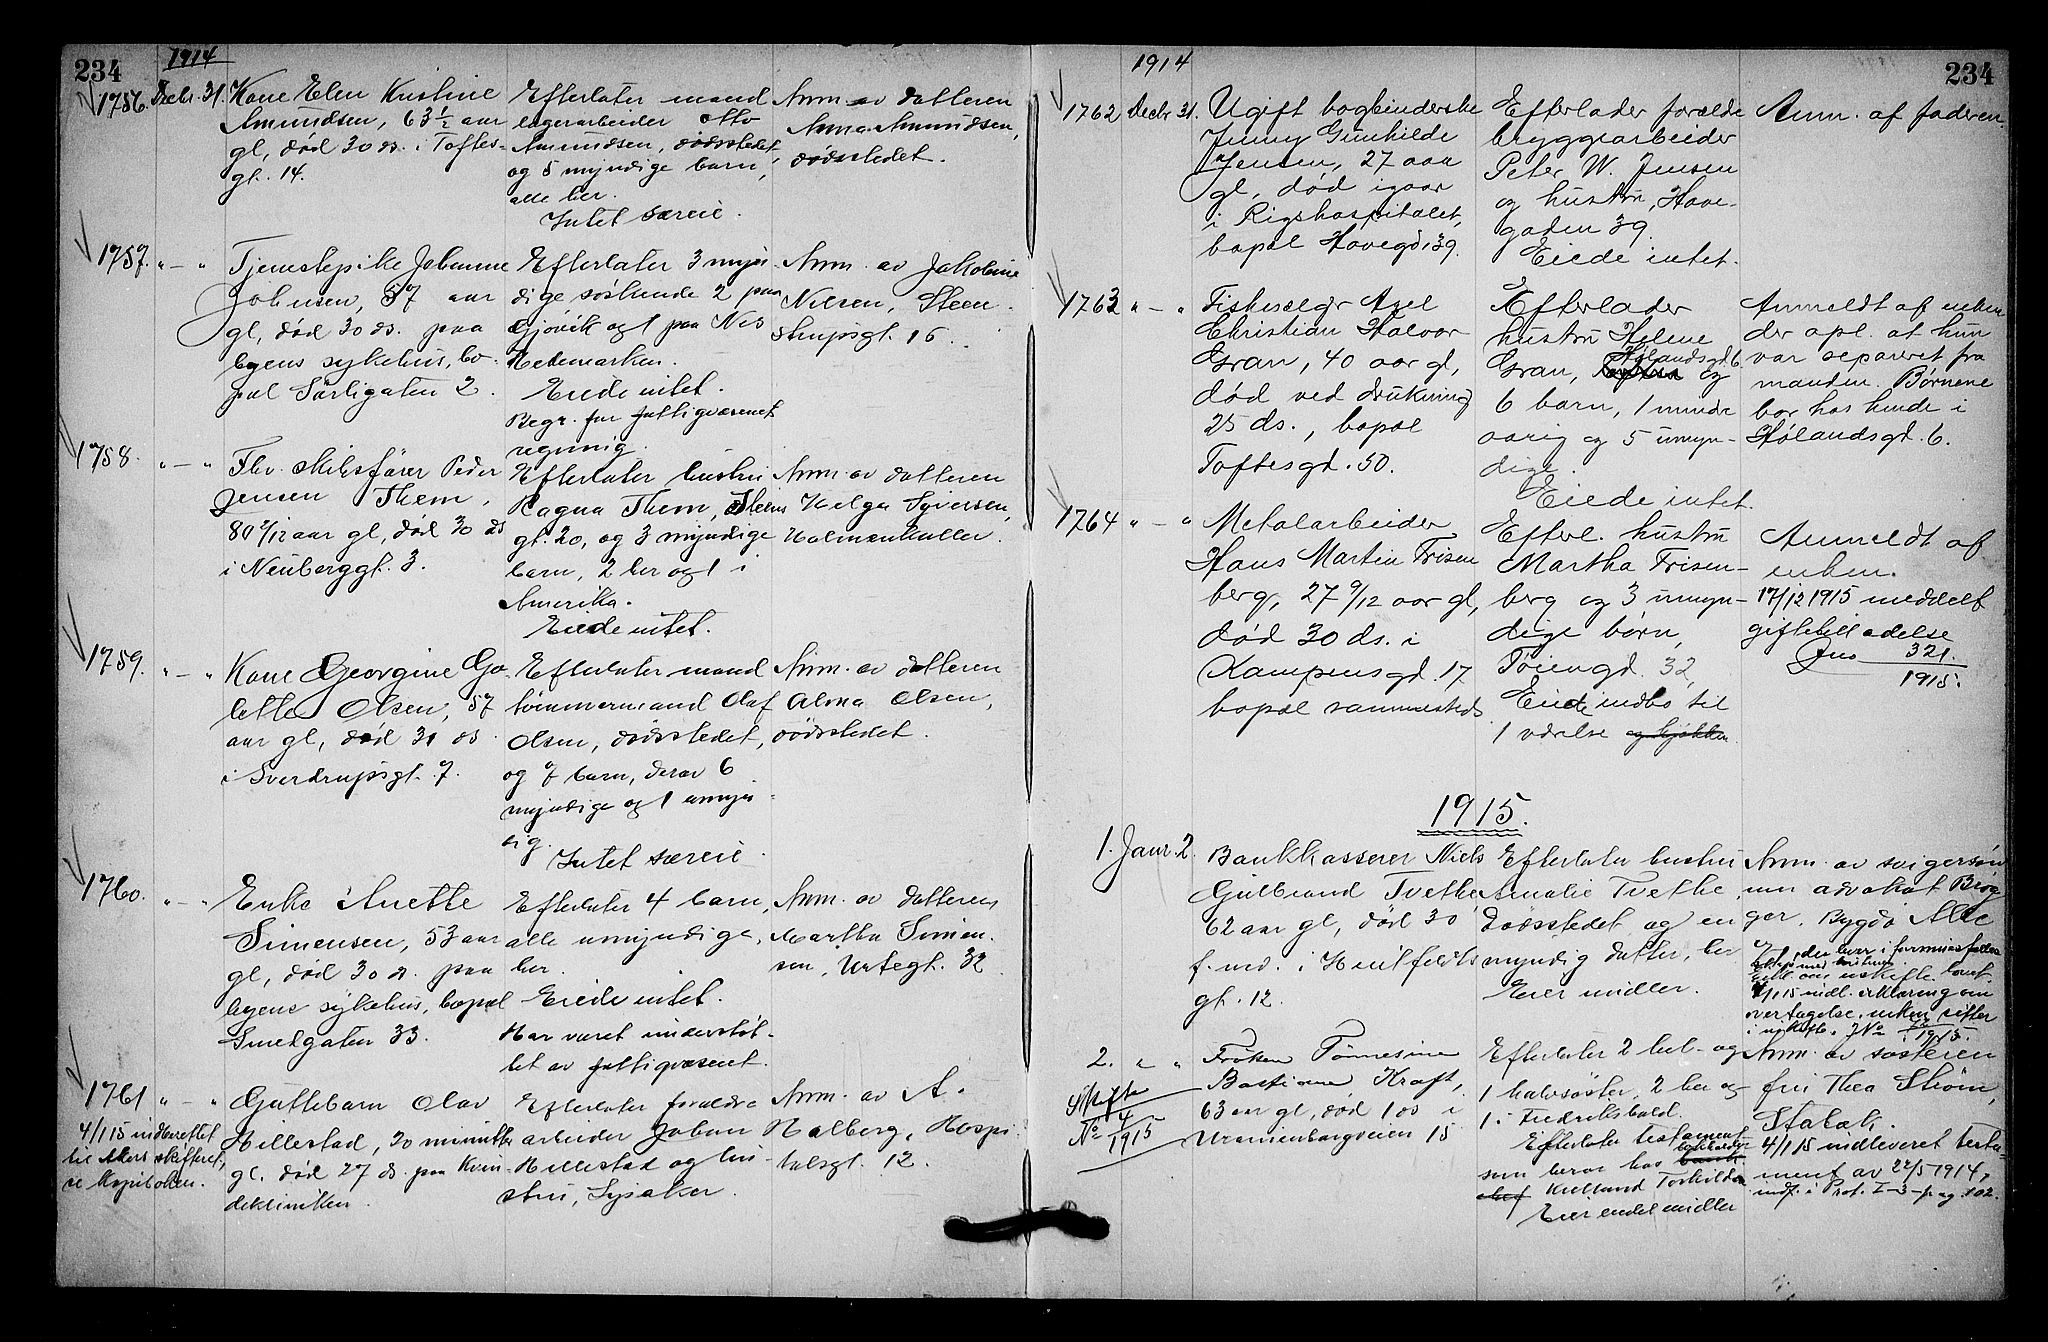 234
1914
1756. Decbr. 31. Kone Elen Kristine
Amundsen, 63 1/2 aar
gl, død 30 ds. i Toftes-
gt. 14.
Efterlater mand
lagerarbeider Otto
Amundsen, dødsstedet
og 5 myndige barn,
alle her.
Intet særeie.
Anm. av datteren
Anna Amundsen,
dødsstedet.
1757. " — " Tjenestepike Johanne
Johnsen, 57 aar
gl, død 30 ds. paa
byens sykehus, bo-
pæl Sørligaten 2.
Efterlater 3 myn-
dige søskende 2 paa
Gjøvik og 1 paa Nes
Hedemarken.
Eiede intet.
Begr. for fattigvæsenets
regning.
Anm. av Jakobine
Nilsen, Steen-
strupsgt. 16.
1758. " — " Fhv. skibsfører Peder
Jensen Them,
80 2/12 aar gl, død 30 ds
i Neuberggt. 3.
Efterlater hustru
Ragna Them,
gt. 20, og 3 myndige
barn, 2 her og 1 i
Amerika.
Eiede intet.
Anm. av datteren
Helga Syversen,
Holmenkollen.
1759. " — " Kone Georgine Go-
lette Olsen, 57
aar gl, død 31 ds.
i Sverdrupsgt. 7.
Efterlater mand
tømmermand Olaf
Olsen, dødsstedet,
og 7 barn, derav 6
myndige og 1 umyn-
dig.
Intet særeie.
Anm. av datteren
Alma Olsen,
dødsstedet.
1760. " — " Enke Anette
Simensen, 53 aar
gl, død 30 ds. paa
byens sykehus, bopæl
Smedgaten 33.
Efterlater 4 barn,
alle umyndige,
her.
Eiede intet.
Har været understøt-
tet av fattigvæsenet.
Anm. av datteren
Martha Simen-
sen, Urtegt. 32
1761 " — " Guttebarn Olav
Hillestad, 20 minutter
gl. død 27 ds. paa Kvin-
deklinikken.
4/1 15 indberettet
til Akers skifteret,
se kopiboken.
Efterlater forældre
arbeider Johan
Hillestad og hu-
stru, Lysaker.
Anm. av A.
Halberg, Hospi-
talsgt. 12.
234
1914
1762 Decbr 31. Ugift bogbinderske
Jenny Gunhilde
Jensen, 27 aar
gl, død igaar
i Rigshospitalet,
bopæl Havegd. 39.
Efterlader forældre
bryggearbeider
Peter W. Jensen
og hustru, Have-
gaden 39.
Eiede intet.
Anm. af faderen.
1763 " — " Fiskesælgr Axel
Christian Halvor
Gran, 40 aar gl,
død ved drukning
25 ds., bopæl
Toftesgd. 50.
Efterlader
hustru Helene
Gran, Hølandsgd. 6 og
6 barn, 1 mindre-
aarig og 5 umyn-
dige.
Eiede intet.
Anmeldt af enken
der opl. at hun
var separeret fra
manden. Børnene
bor hos hende i
Hølandsgd. 6.
1764 " — " Metalarbeider
Hans Martin Frisen
berg, 27 9/12 aar gl,
død 30 ds. i
Kampensgd. 17
bopæl sammesteds
Efterl. hustru
Martha Frisen-
berg og 3 umyn-
dige børn,
Tøiengd. 32,
Eiede indbo til
1 værelse og kjøkken.
Anmeldt af
enken.
17/12 1915 meddelt
giftetilladelse
Jno 321
1915.
1915.
1. Janr. 2. Bankkasserer Niels
Gulbrand Tvethe
62 aar gl, død 30
f. md. i Huitfeldts
gt. 12.
Efterlater hustru
Amalie Tvethe,
dødsstedet og en
myndig datter, her
Eier midler.
Anm. av svigersøn-
nen advokat Brøg
ger, Bygdø Allé
7, der lever i formuesfælles
skap med hustruen.
4/1 15 indl. erklæring om
overtagelse, enken sitter
i uskifte. JNo
1915.
2. " " Frøken Tønnesine
Bastiane Kraft,
63 aar gl, død 1 ds i
Uranienborgveien 15
Skifte
No 4
1915
Efterlater 2 hel- og
1 halvsøster, 2 her og
1 i Fredrikshald.
Efterlater testament
som beror hos
Kielland Torkildsen
Eier endel midler
Anm. av søsteren
fru Thea Strøm,
Stabæk.
4/1 15 indleveret testa-
ment av 22/5 1914,
indf. i Prot. I-3-pag. 102.